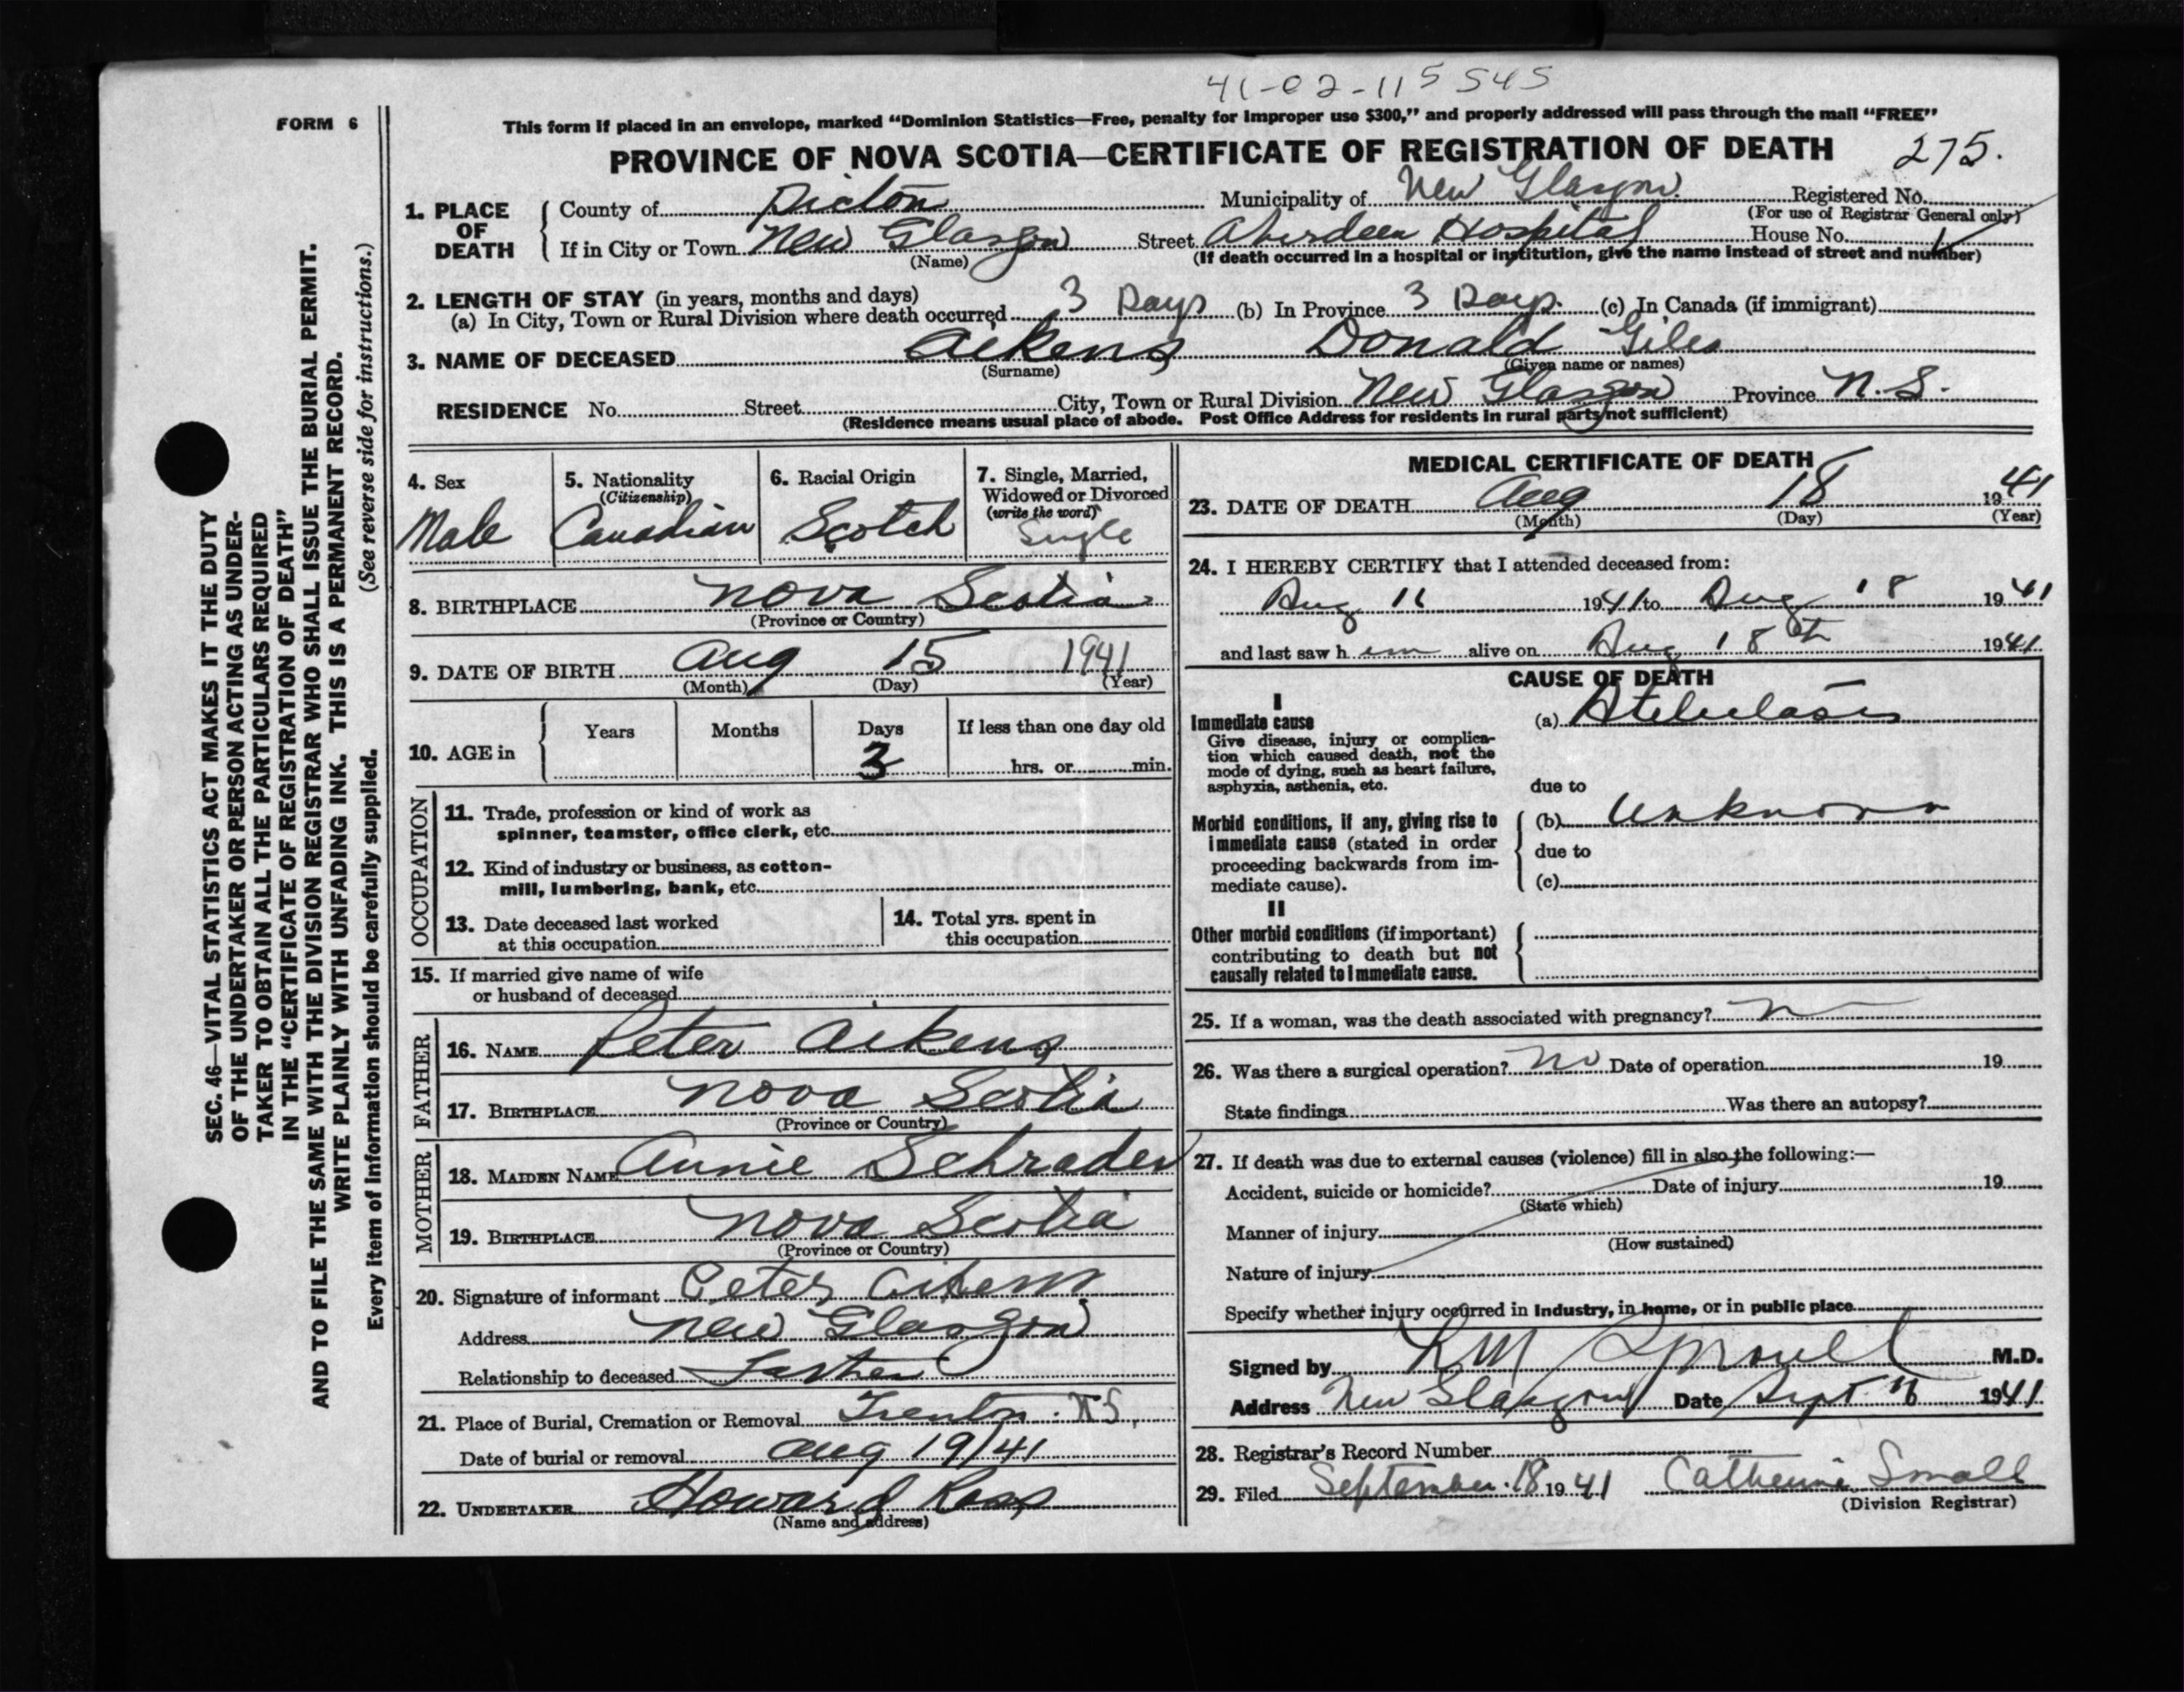 41-02-115545
FORM 6
This form if placed in an envelope, marked “Dominion Statistics—Free, penalty for improper use $300,” and properly addressed will pass through the mail “FREE”
PROVINCE OF NOVA SCOTIA—CERTIFICATE OF REGISTRATION OF DEATH 275.
1. PLACE OF DEATH
County of Pictou Municipality of New Glasgow. Registered No.
(For use of Registrar General only)
If in City or Town New Glasgow Street Aberdeen Hospital House No.
(Name) (If death occurred in a hospital or institution, give the name instead of street and number)
2. LENGTH OF STAY (in years, months and days)
(a) In City, Town or Rural Division where death occurred 3 Days (b) In Province 3 Days. (c) In Canada (if immigrant)
3. NAME OF DECEASED Aikens Donald Giles
(Surname) (Given name or names)
RESIDENCE No. Street City, Town or Rural Division New Glasgow Province N.S.
(Residence means usual place of abode. Post Office Address for residents in rural parts not sufficient)
4. Sex
Male
5. Nationality
(Citizenship)
Canadian
6. Racial Origin
Scotch
7. Single, Married,
Widowed or Divorced
(write the word)
Single
8. BIRTHPLACE Nova Scotia
(Province or Country)
9. DATE OF BIRTH Aug 15 1941
(Month) (Day) (Year)
10. AGE in
Years Months Days If less than one day old
3 hrs. or min.
OCCUPATION
11. Trade, profession or kind of work as
spinner, teamster, office clerk, etc.
12. Kind of industry or business, as cotton-
mill, lumbering, bank, etc.
13. Date deceased last worked
at this occupation
14. Total yrs. spent in
this occupation
15. If married give name of wife
or husband of deceased
FATHER
16. NAME Peter Aikens
17. BIRTHPLACE Nova Scotia
(Province or Country)
MOTHER
18. MAIDEN NAME Annie Schrader
19. BIRTHPLACE Nova Scotia
(Province or Country)
20. Signature of informant Peter Aikens
Address New Glasgow
Relationship to deceased Father
21. Place of Burial, Cremation or Removal Trenton. NS,
Date of burial or removal Aug 19/41
22. UNDERTAKER Howard Ross
(Name and address)
MEDICAL CERTIFICATE OF DEATH
23. DATE OF DEATH Aug 18 1941
(Month) (Day) (Year)
24. I HEREBY CERTIFY that I attended deceased from:
Aug 1941 to Aug 18 1941
and last saw him alive on Aug 18th 1941
CAUSE OF DEATH
I
Immediate cause
Give disease, injury or complica-
tion which caused death, not the
mode of dying, such as heart failure,
asphyxia, asthenia, etc.
(a) Atelectasis
due to
Morbid conditions, if any, giving rise to
immediate cause (stated in order
proceeding backwards from im-
mediate cause).
(b) Unknown
due to
(c)
II
Other morbid conditions (if important)
contributing to death but not
causally related to immediate cause.
25. If a woman, was the death associated with pregnancy?
26. Was there a surgical operation? No Date of operation 19
State findings Was there an autopsy?
27. If death was due to external causes (violence) fill in also the following:—
Accident, suicide or homicide? Date of injury 19
(State which)
Manner of injury
(How sustained)
Nature of injury
Specify whether injury occurred in industry, in home, or in public place
Signed by Sproull M.D.
Address New Glasgow Date Sept. 1941
28. Registrar's Record Number
29. Filed September 18 1941 Catherine Small
(Division Registrar)
SEC. 46—VITAL STATISTICS ACT MAKES IT THE DUTY
OF THE UNDERTAKER OR PERSON ACTING AS UNDER-
TAKER TO OBTAIN ALL THE PARTICULARS REQUIRED
IN THE “CERTIFICATE OF REGISTRATION OF DEATH”
AND TO FILE THE SAME WITH THE DIVISION REGISTRAR WHO SHALL ISSUE THE BURIAL PERMIT.
WRITE PLAINLY WITH UNFADING INK. THIS IS A PERMANENT RECORD.
(See reverse side for instructions.)
Every item of information should be carefully supplied.